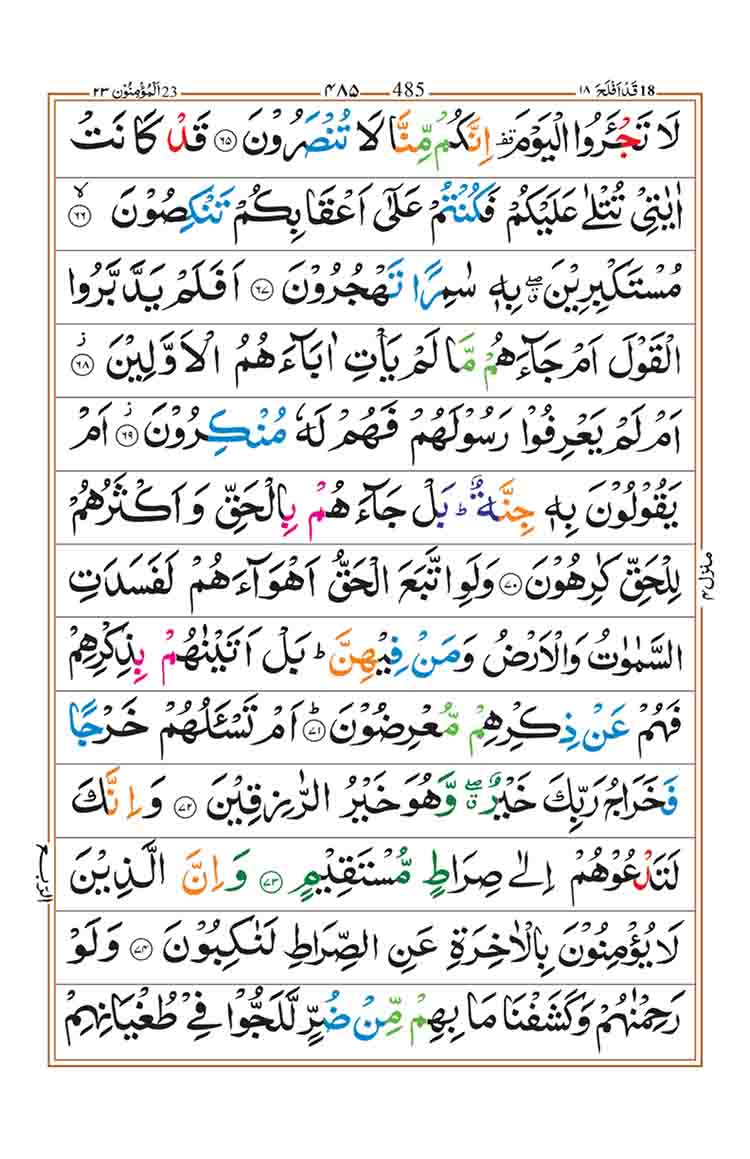 18 قَدْ اَفْلَحَ ١٨ 485 ۴۸۵ 23 اَلْمُؤْمِنُوْن ٢٣
لَا تَجْـَٔرُوا الْيَوْمَ ۫ اِنَّكُمْ مِّنَّا لَا تُنْصَرُوْنَ ۝۶۵ قَدْ كَانَتْ
اٰيٰتِيْ تُتْلٰى عَلَيْكُمْ فَكُنْتُمْ عَلٰۤى اَعْقَابِكُمْ تَنْكِصُوْنَ ۝۶۶ ۙ
مُسْتَكْبِرِيْنَ ۖ بِهٖ سٰمِرًا تَهْجُرُوْنَ ۝۶۷ اَفَلَمْ يَدَّبَّرُوا
الْقَوْلَ اَمْ جَآءَهُمْ مَّا لَمْ يَاْتِ اٰبَآءَهُمُ الْاَوَّلِيْنَ ۝۶۸ ز
اَمْ لَمْ يَعْرِفُوْا رَسُوْلَهُمْ فَهُمْ لَهٗ مُنْكِرُوْنَ ۝۶۹ ز اَمْ
يَقُوْلُوْنَ بِهٖ جِنَّةٌ ؕ بَلْ جَآءَهُمْ بِالْحَقِّ وَاَكْثَرُهُمْ
لِلْحَقِّ كٰرِهُوْنَ ۝۷۰ وَلَوِ اتَّبَعَ الْحَقُّ اَهْوَآءَهُمْ لَفَسَدَتِ
السَّمٰوٰتُ وَالْاَرْضُ وَمَنْ فِيْهِنَّ ؕ بَلْ اَتَيْنٰهُمْ بِذِكْرِهِمْ
فَهُمْ عَنْ ذِكْرِهِمْ مُّعْرِضُوْنَ ۝۷۱ ؕ اَمْ تَسْـَٔلُهُمْ خَرْجًا
فَخَرَاجُ رَبِّكَ خَيْرٌ ۖ وَّهُوَ خَيْرُ الرّٰزِقِيْنَ ۝۷۲ وَاِنَّكَ
لَتَدْعُوْهُمْ اِلٰى صِرَاطٍ مُّسْتَقِيْمٍ ۝۷۳ وَاِنَّ الَّذِيْنَ
لَا يُؤْمِنُوْنَ بِالْاٰخِرَةِ عَنِ الصِّرَاطِ لَنٰكِبُوْنَ ۝۷۴ وَلَوْ
رَحِمْنٰهُمْ وَكَشَفْنَا مَا بِهِمْ مِّنْ ضُرٍّ لَّلَجُّوْا فِيْ طُغْيَانِهِمْ
منزل ۴
الربع